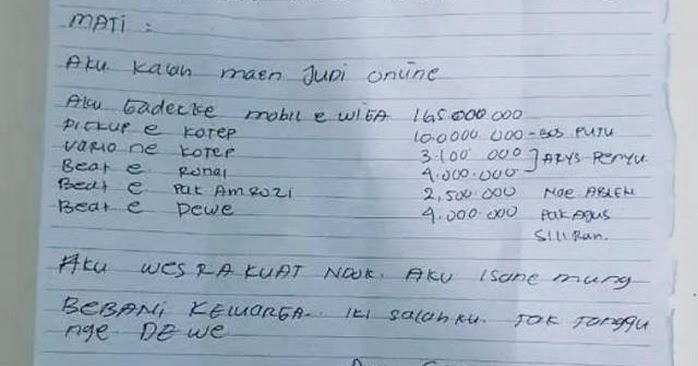 MATI :
AKU KALAH MAEN JUDI ONLINE
AKU GADECKE MOBIL E WIGA 165.000.000
PICKUP E KOTEP 10.0000.000 - BOS PUTU
VARIO NE KOTEP 3.100 000
BEAT E RONAI 4.000.000 ARYS PENYU
BEAT E PAK AMROZI 2,500.000
BEAT E DEWE 4.000.000 PAK AGUS
SILIRAN.
AKU WES RA KUAT NDUK. AKU ISANE MUNG
BEBANI KEWARGA. IKI SALAHKU. TAK TANGGU
NGE DEWE